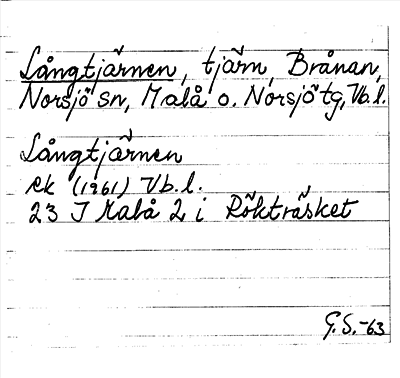 Långtjärnen, tjärn, Brånan,
Norsjö sn, Malå o. Norsjö tg, Vb.l.
Långtjärnen
ek (1961) Vb.l.
23 J Malå 2 i Rökträsket
G.S.-63